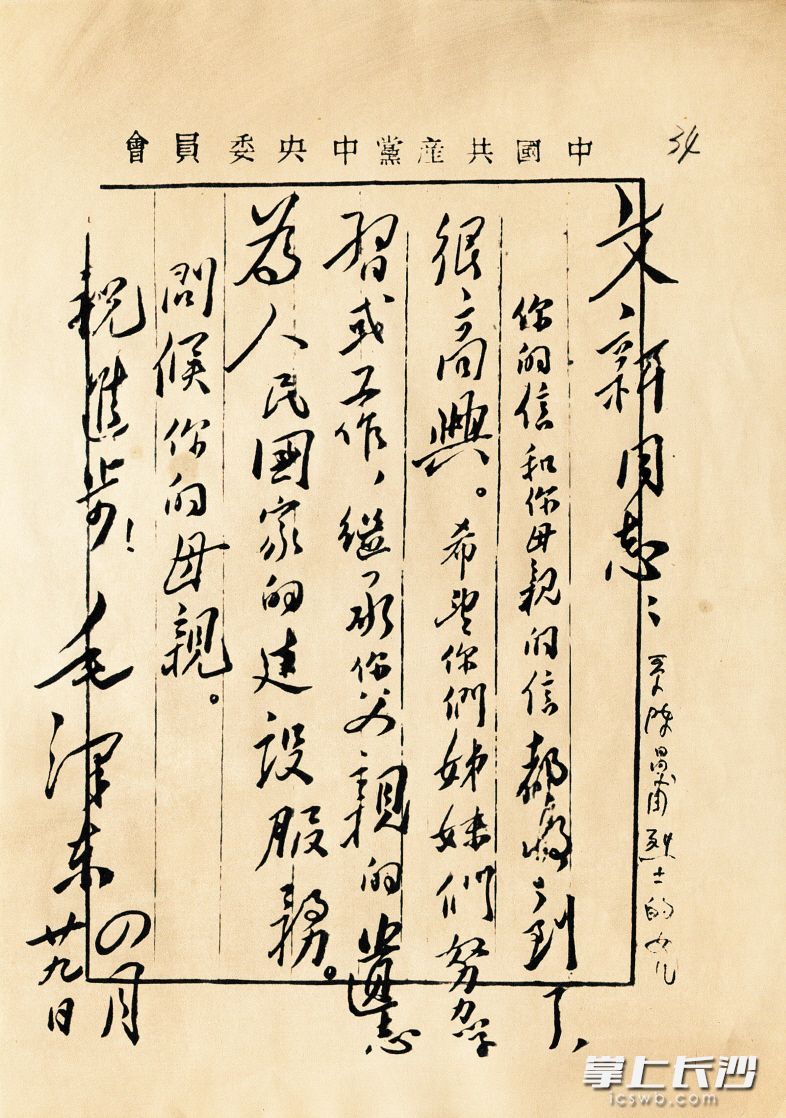 中國共産黨中央委員會
34
文新同志：
陳昌甫烈士的女儿
你的信和你母親的信都收到了，
很高興。希望你們姊妹們努力學
習或工作，繼承你父親的遺志
為人民國家的建設服務。
問候你的母親。
祝進步！
毛澤東
四月
廿九日
掌上长沙
icswb.com